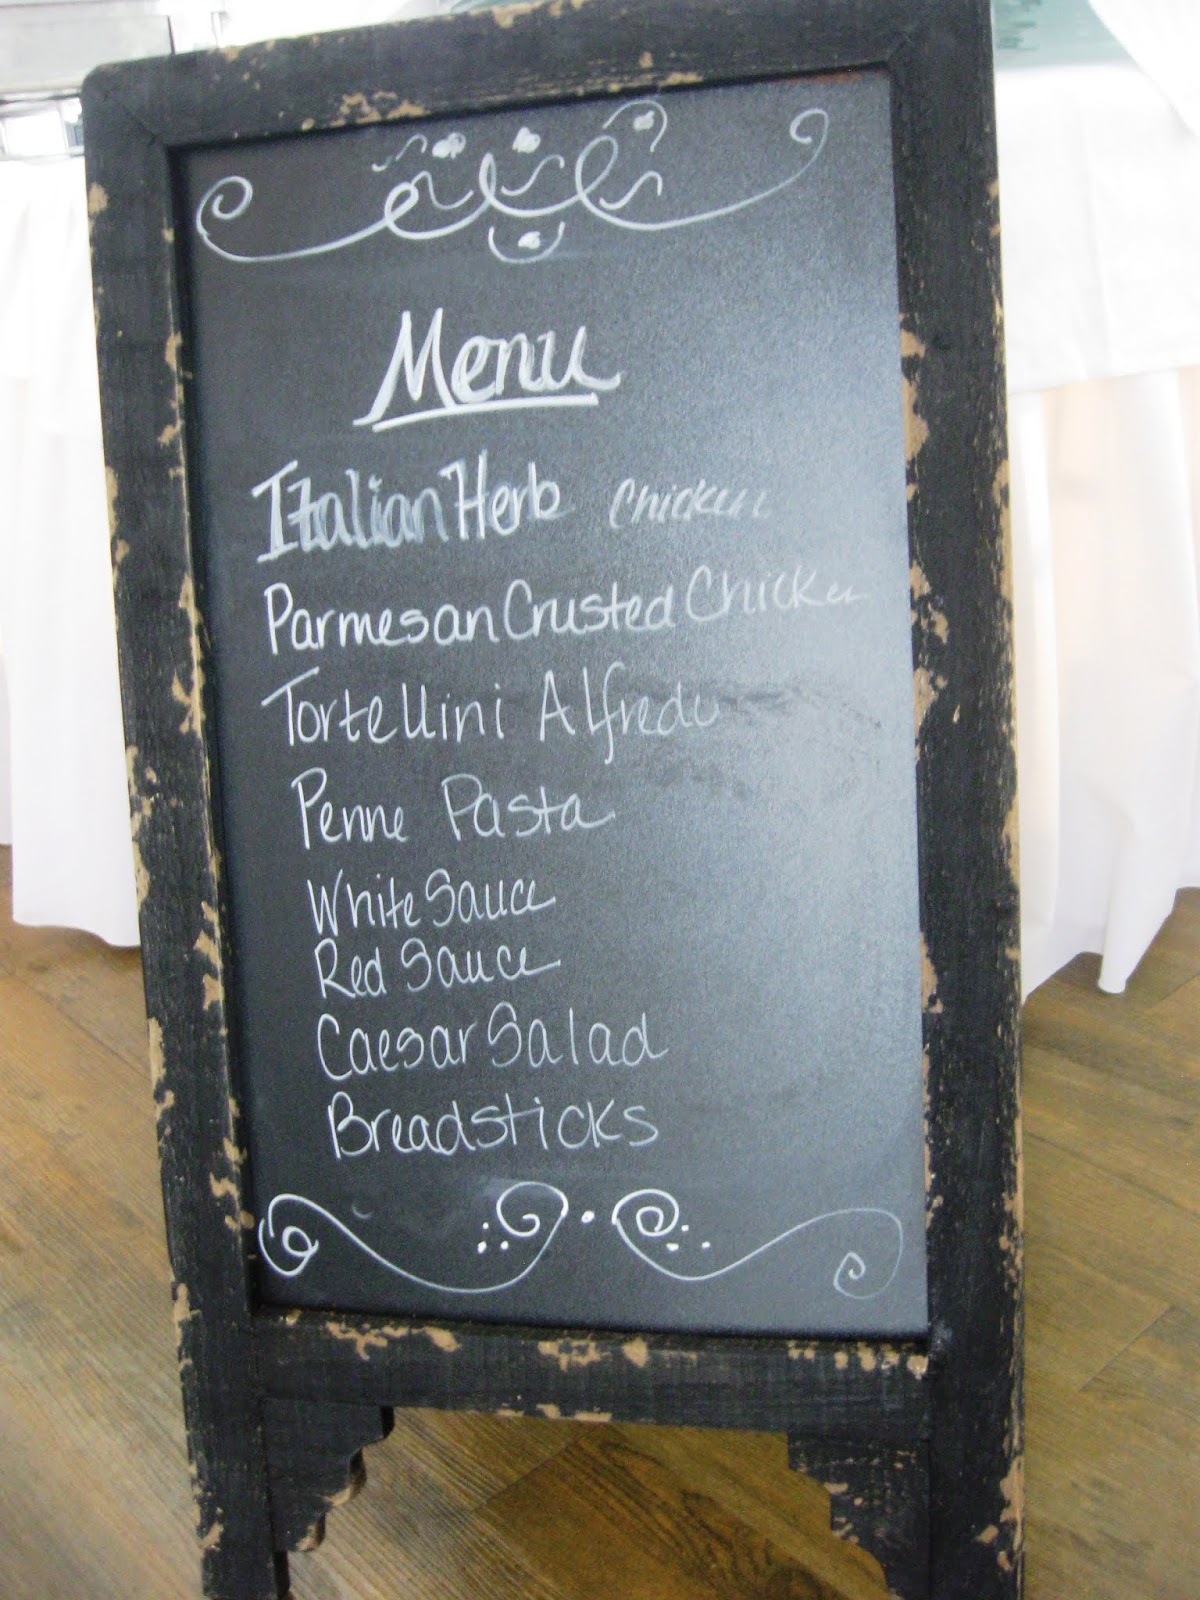 Menu
Italian Herb Chicken
Parmesan Crusted Chicken
Tortellini Alfredo
Penne Pasta
White Sauce
Red Sauce
Caesar Salad
Breadsticks